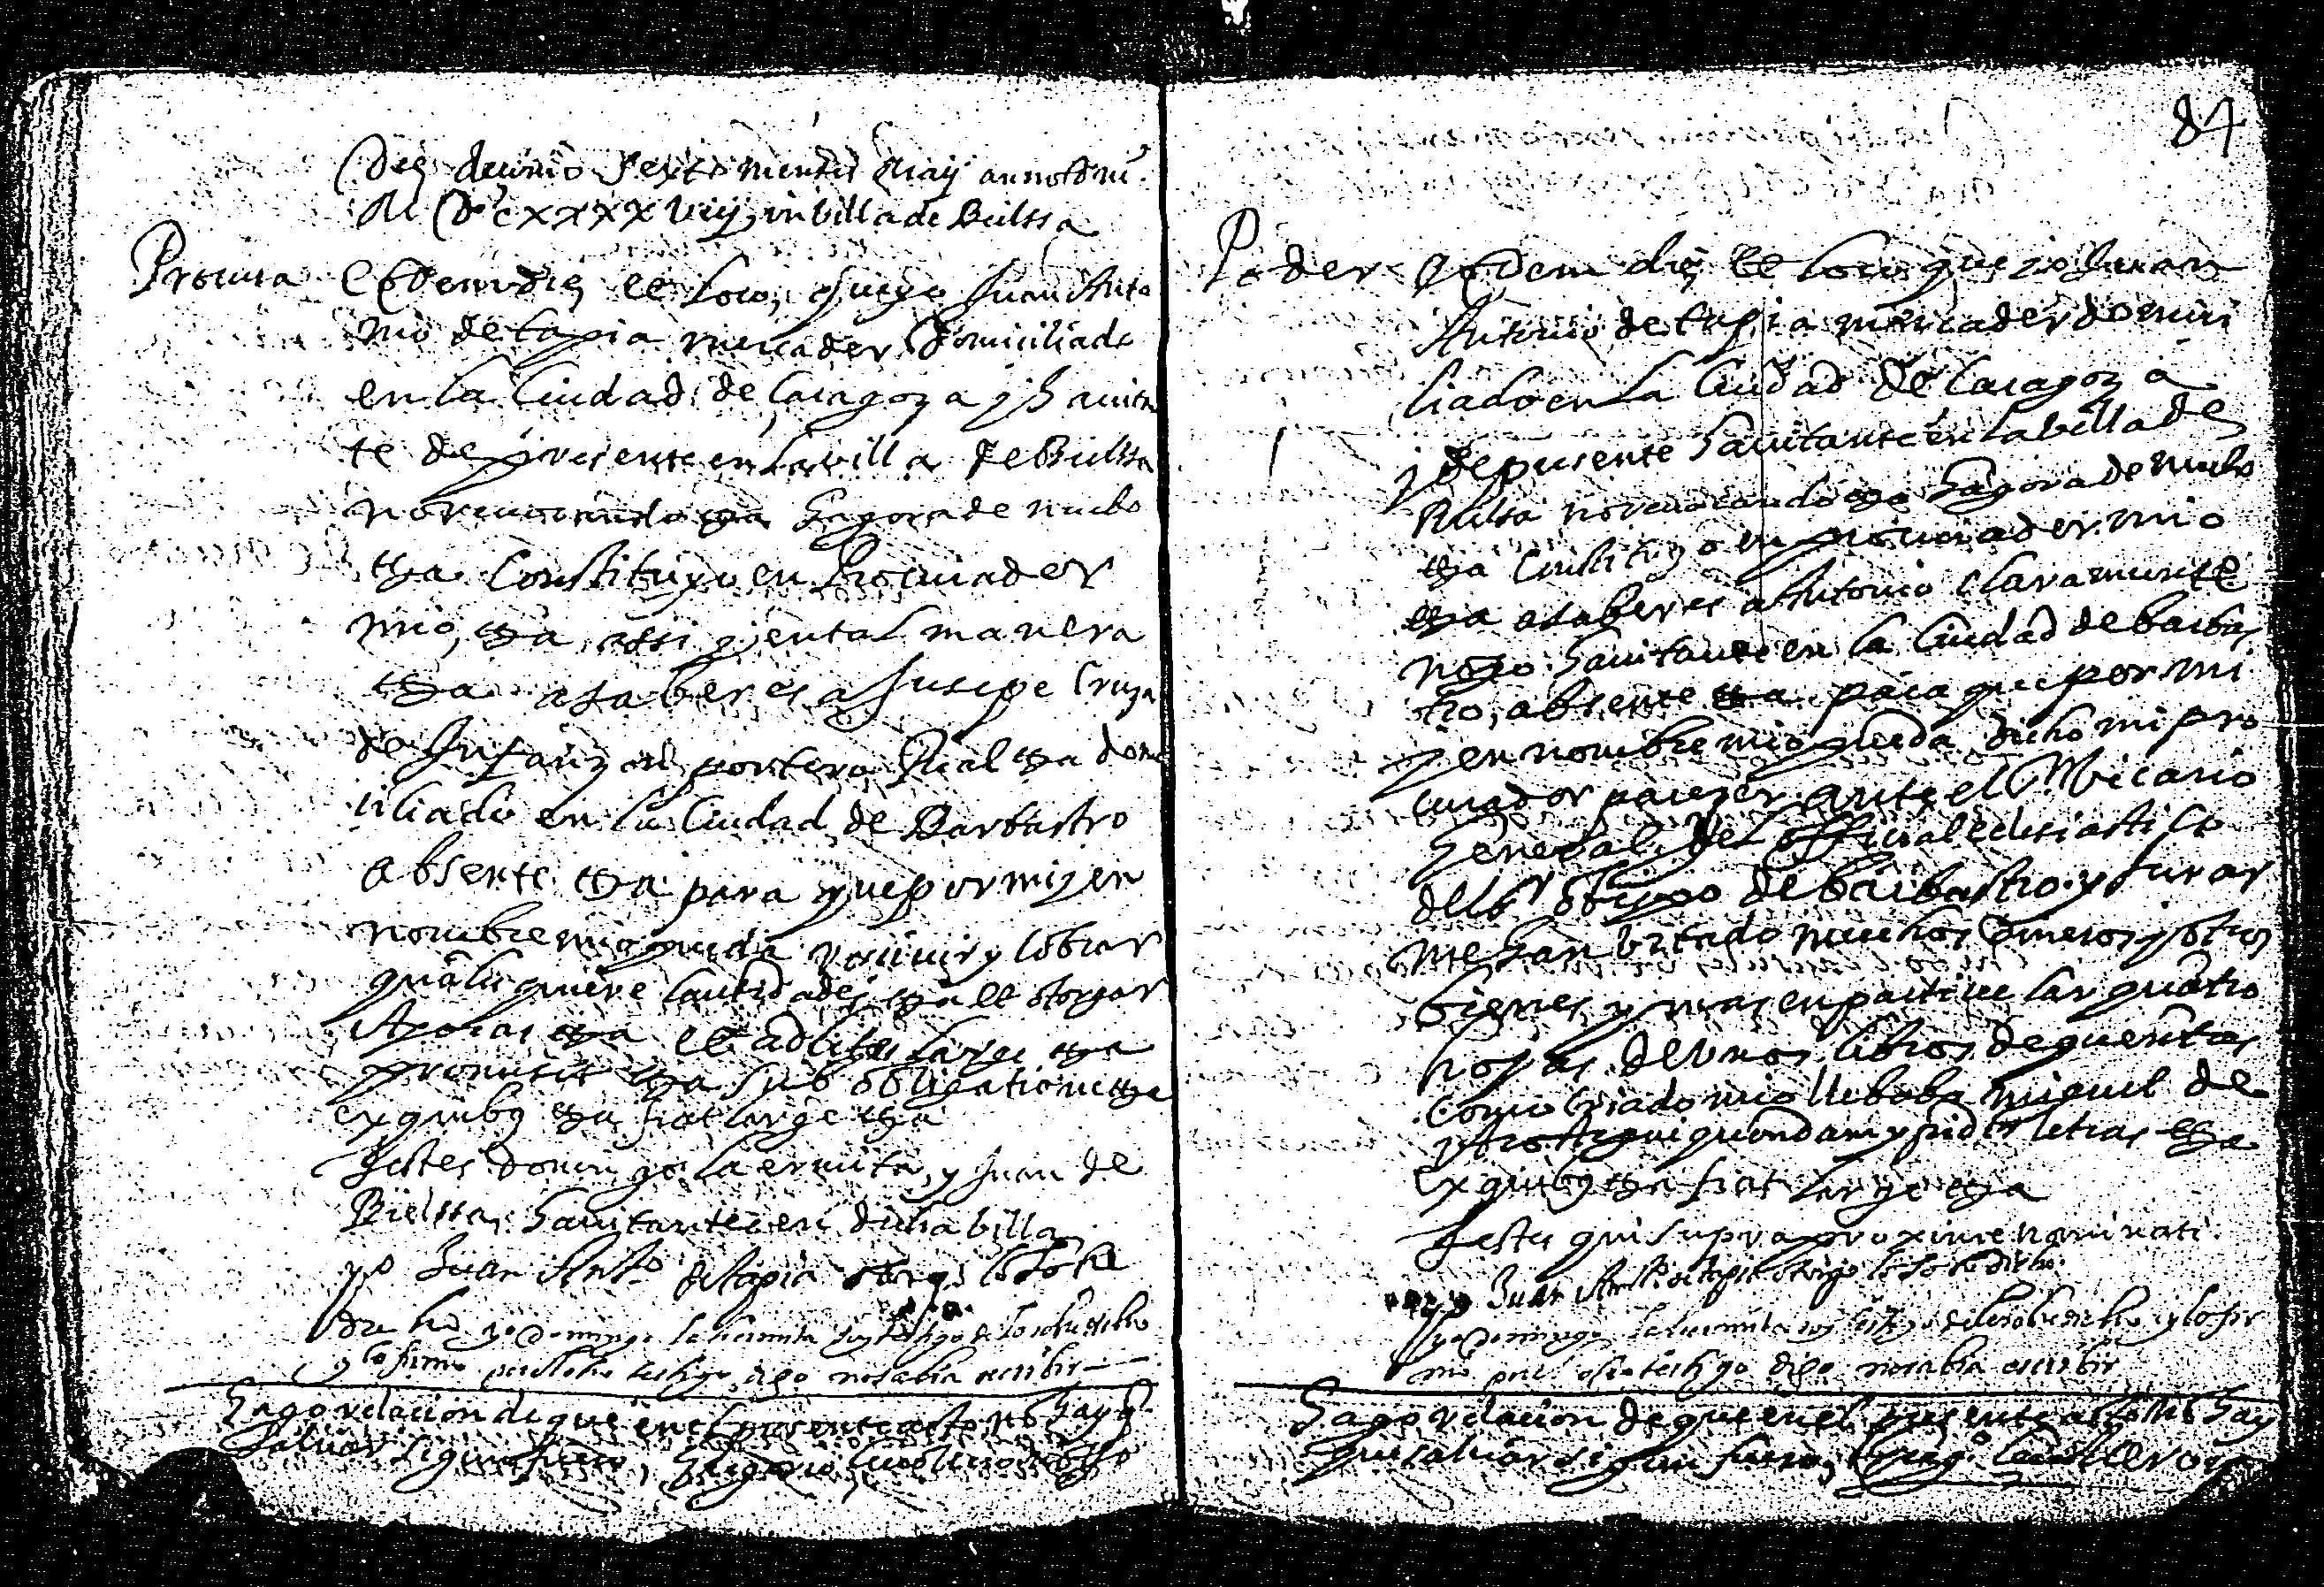 Die decimo sexto mensis Maij anno Dni
M DC XXXX viij in villa de Bielssa
Procura Eodem die et loco, que yo Juan Anto
nio de tapia mercader Domiciliado
en la Ciudad de Caragoza y havitan
te de presente en la villa de Bielssa
no revocando etza hagora de nuebo
etza Constituyo en Procurador
mio, etza, assi y en tal manera
etza a saber es a Jusepe Cruza
de Infanzon portero Real etza domi
ciliado en la Ciudad de Barbastro
absente etza para que por mi y en
nombre mio pueda recivir y cobrar
qualesquiere cantidades etza et otorgar
Apocas etza et ad lites large etza
promisit etza sub obligatione etza
ex quibus etza fiat large etza
Testes Domingo la ermita, y Juan de
Bielssa, havitantes en dicha billa
yo Juan Anto de tapia otorgo lo sobre
dicho yo Domingo la hermita soy testigo de lo sobredicho
y lo firmo por el otro testigo digo no sabia escribir
Hago relacion de que en el presente acto no hay q
salvar segun fuero,
87
Poder Eodem die et loco que yo Juan
Antonio de tapia mercader domici
liado en la Ciudad de Caragoza
y de presente havitante en la billa de
Bielsa no revocando etza hagora de nuebo
etza Constituyo en procurador mio
etza a saber es a Antonio Claramunte
noto havitante en la Ciudad de barbas
tro, absente etza para que por mi
y en nombre mio pueda dicho mi pro
curador parezer ante el Sr Vicario
General y del official eclesiastico
del Sr obispo de barbastro y jurar
me han quitado muchos dineros y otros
bienes y mas en particular quatro
hojas de unos libros de quentas
como criado mio llebaba miguel de
quondam y pidir letras etza
Ex quibus etza fiat large etza
Testes qui supra proxime nominati
yo Juan Anto de tapia otorgo lo sobredicho
yo Domingo la hermita soy testigo de lo sobredicho y lo fir
mo por el otro testigo digo no sabia escribir
Hago relacion de que en el presente acto no hay
que salvar sigun fuero,